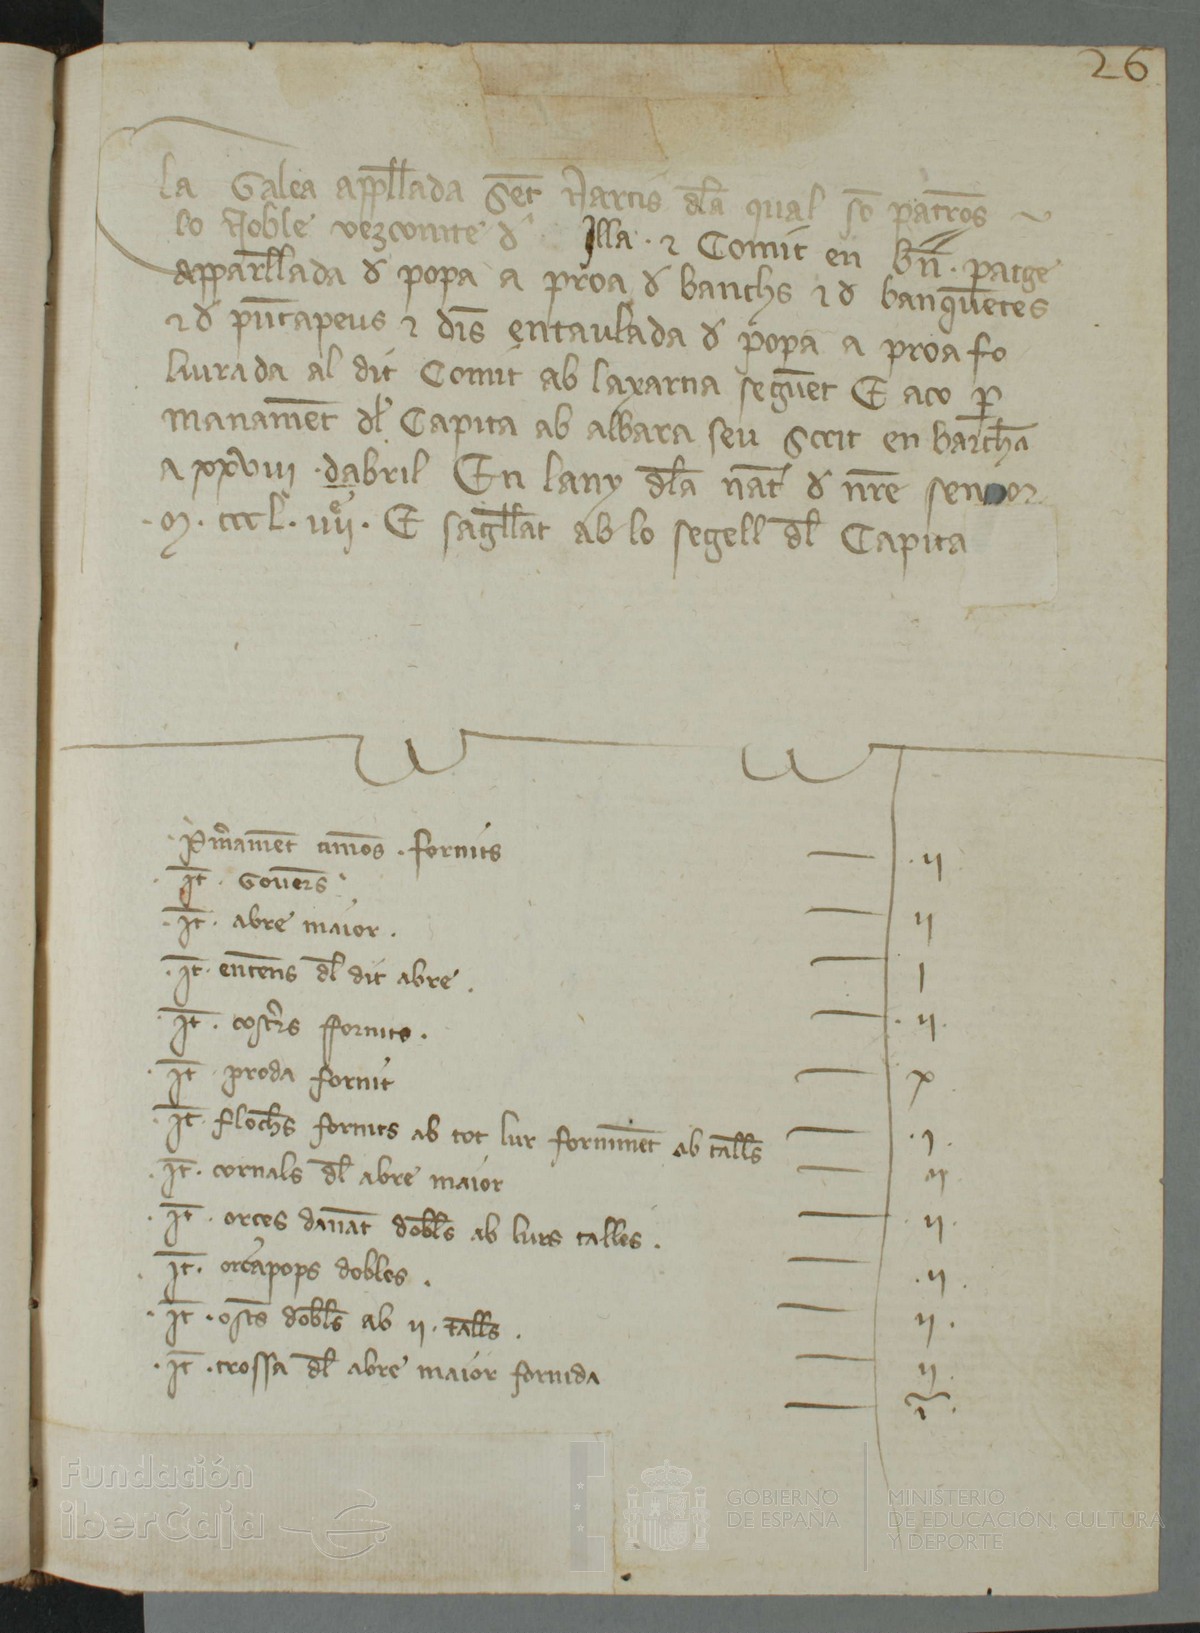 26
La Galea appllada Sēt Narcis dla qual sō patrōs
lo Noble vezcomte d Illa · ⁊ Comit en Bn̄ · patge
apparllada d popa a proa d banchs ⁊ d banquetes
⁊ d pūtapeus ⁊ dīs entaulada d popa a proa fo
liurada al dit Comit ab laxarcia seguēt E aco p
manamēt dl Capita ab albara seu Scrit en barchā
a xxviii · dabril En lany dla nāt d nr̄e senyor
· M · cccl · viiij · E sagllat ab lo segell dl Capita
· Pm̄amēt timōs · fornits · ij
· Jt̄ · Govērs · ij
· Jt̄ · abre maior · j
· Jt̄ · entēns dl dit abre · ij ·
· Jt̄ · costrs ffornits · x ·
· Jt̄ · proda fornit · j ·
· Jt̄ · flochs fornits ab tot lur fornimēt ab talls
· Jt̄ · cornals dl abre maior · ij ·
· Jt̄ · orces davāt dobls ab lurs talles · ij ·
· Jt̄ · orcapops dobles · ij ·
· Jt̄ · osts dobls ab ij · talls · ij ·
· Jt̄ · trossa dl abre maior fornida · i ·
Fundación
iberCaja
GOBIERNO
DE ESPAÑA
MINISTERIO
DE EDUCACIÓN, CULTURA
Y DEPORTE